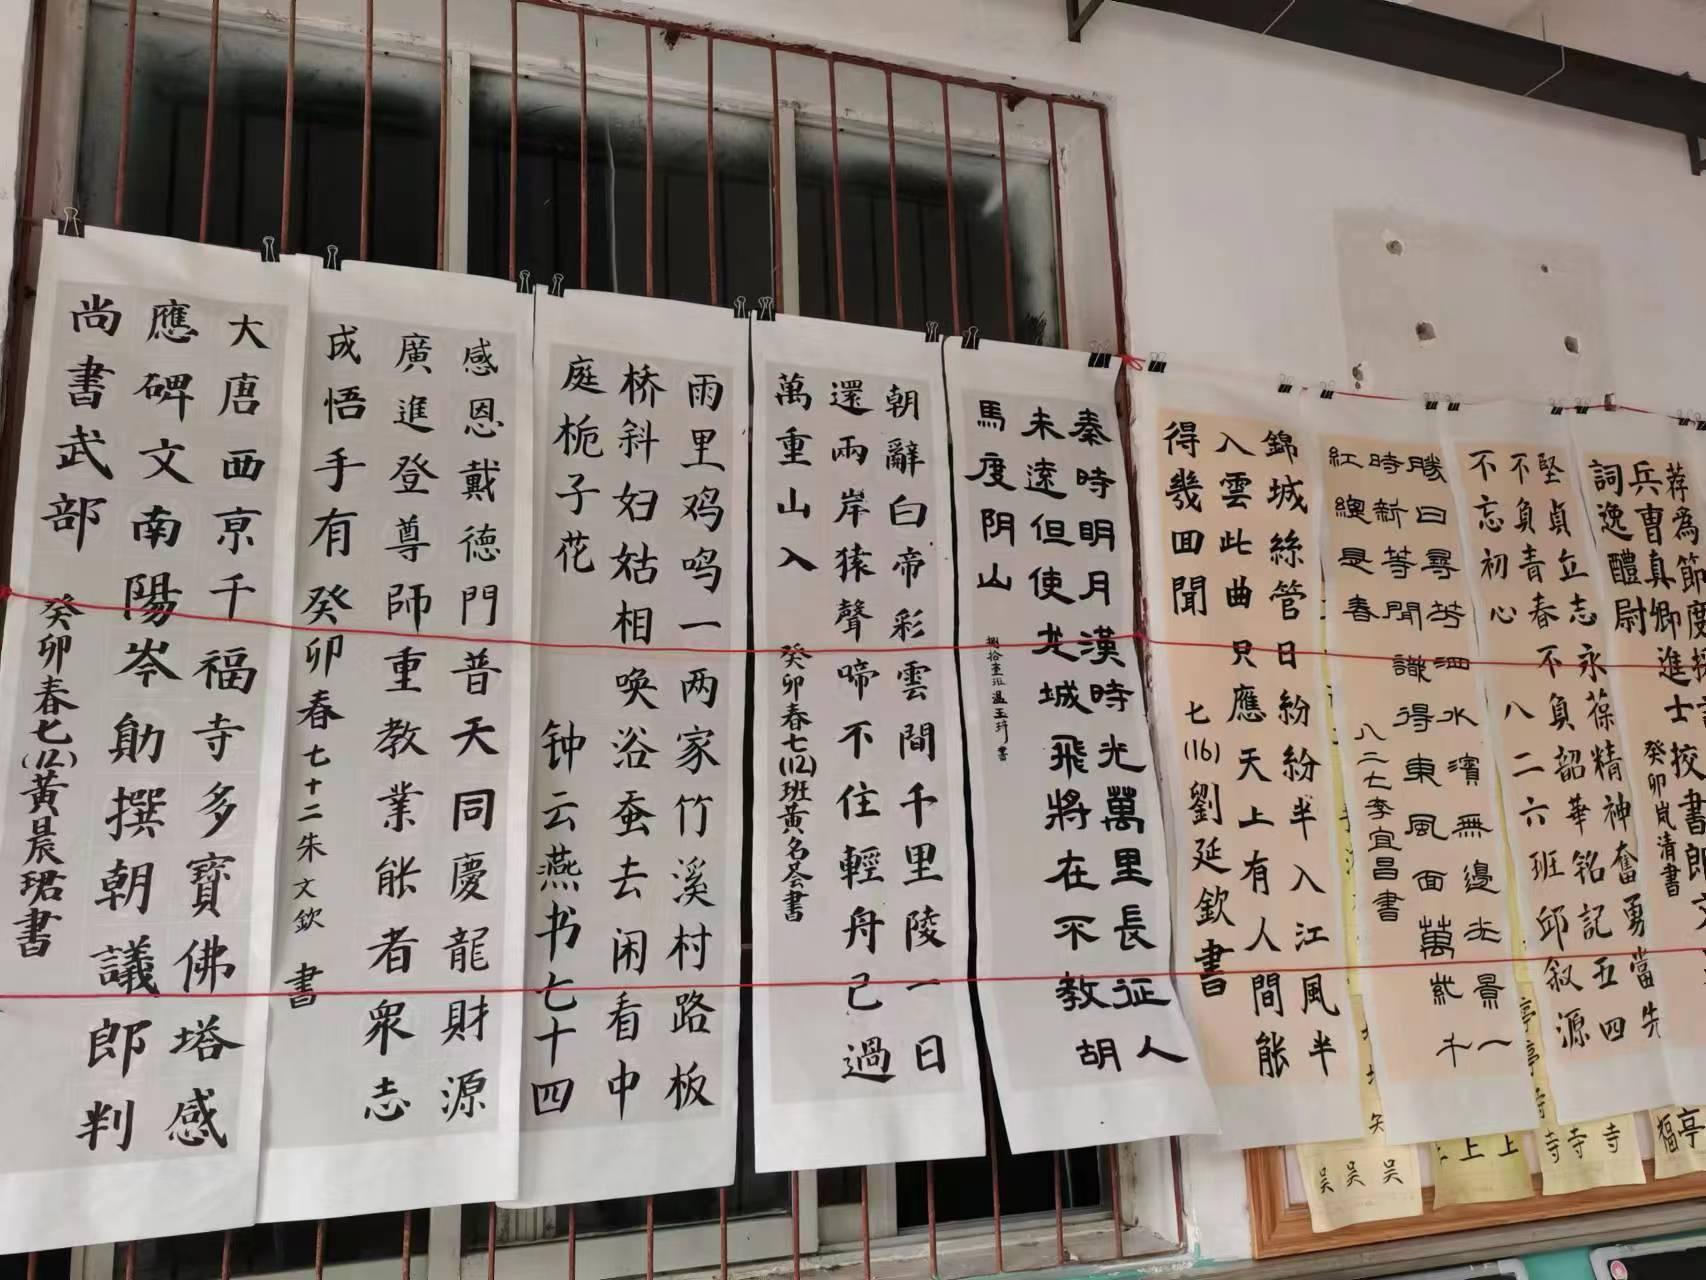 大唐西京千福寺多寶佛塔感
應碑文南陽岑勛撰朝議郎判
尚書武部
癸卯春七(12)黃晨珺書
感恩戴德門普天同慶龍財源
廣進登尊師重教業能者眾志
成悟手有癸卯春七十二朱文欽書
雨里鸡鸣一两家竹溪村路板
桥斜妇姑相唤浴蚕去闲看中
庭栀子花
钟云燕书七十四
朝辭白帝彩雲間千里陵一日
還兩岸猿聲啼不住輕舟已過
萬重山入
癸卯春七(12)班黄名荟書
秦時明月漢時光萬里長征人
未遠但使龙城飛將在不教胡
馬度阴山
捌拾壹班温玉珩書
錦城絲管日紛紛半入江風半
入雲此曲只應天上有人間能
得幾回聞
七(16)劉延欽書
勝日尋芳泗水濱無邊光景一
時新等閒識得東風面萬紫千
紅總是春
八二七李宜昌書
堅貞立志永葆精神奮勇當先
不負青春不負韶華銘記五四
不忘初心
八二六班邱叙源
荐為節度採書
兵曹真卿進士校書郎
詞逸醴尉
癸卯岚清書
吴吴吴
上上
寺寺寺
福亭